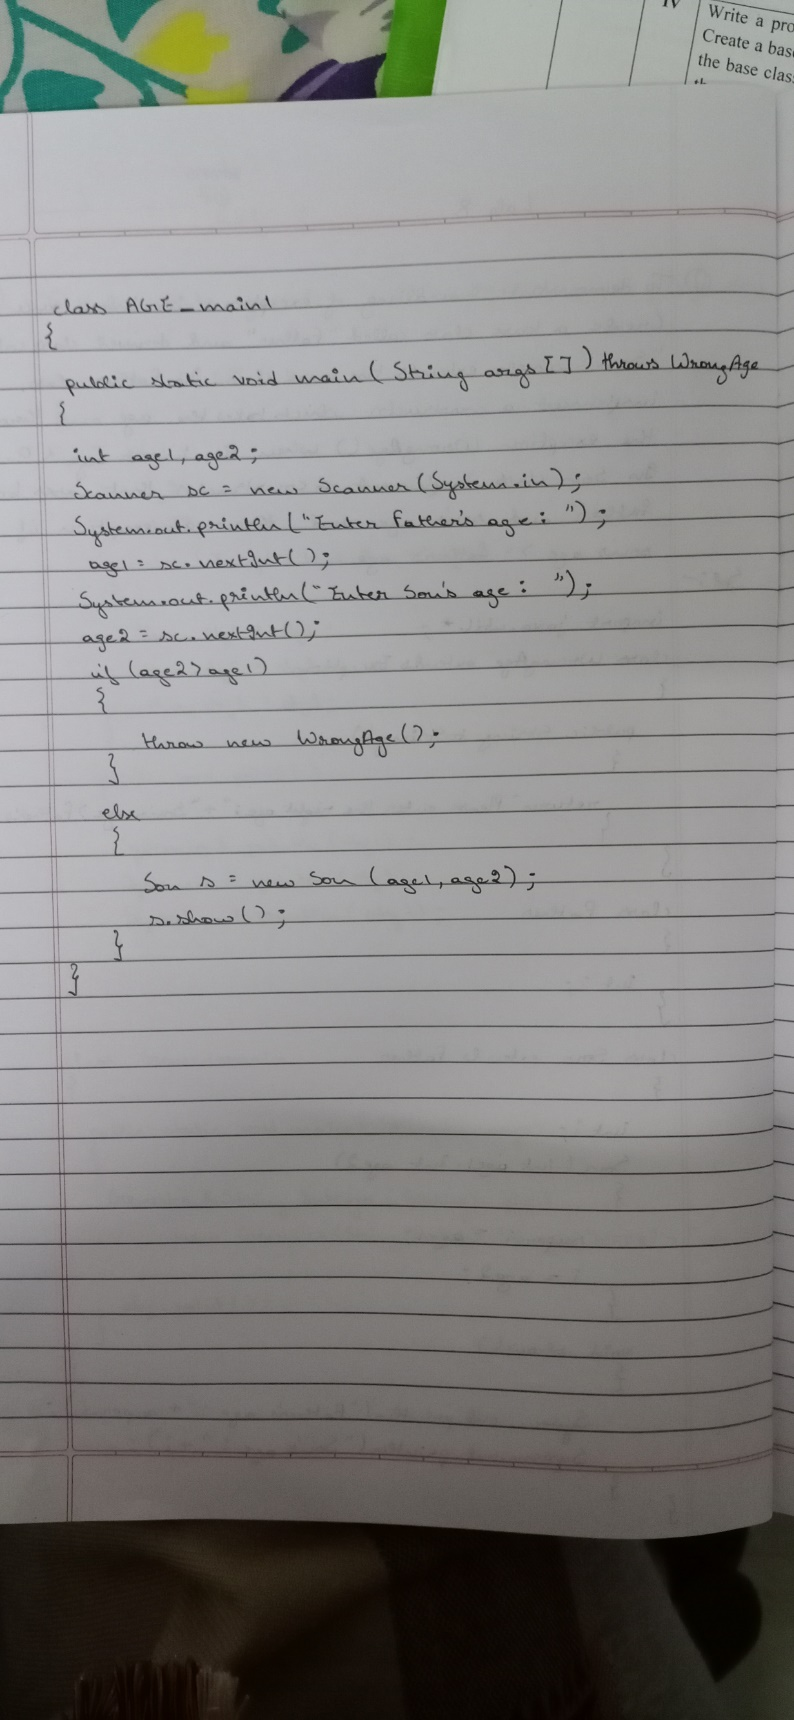 IV
Write a pro
Create a bas
the base clas
class AGE_main1
{
public static void main(String args[]) throws WrongAge
{
int age1, age2;
Scanner sc = new Scanner(System.in);
System.out.println("Enter father's age: ");
age1 = sc.nextInt();
System.out.println("Enter Son's age: ");
age2 = sc.nextInt();
if (age2>age1)
{
throw new WrongAge();
}
else
{
Son s = new Son (age1, age2);
s.show();
}
}